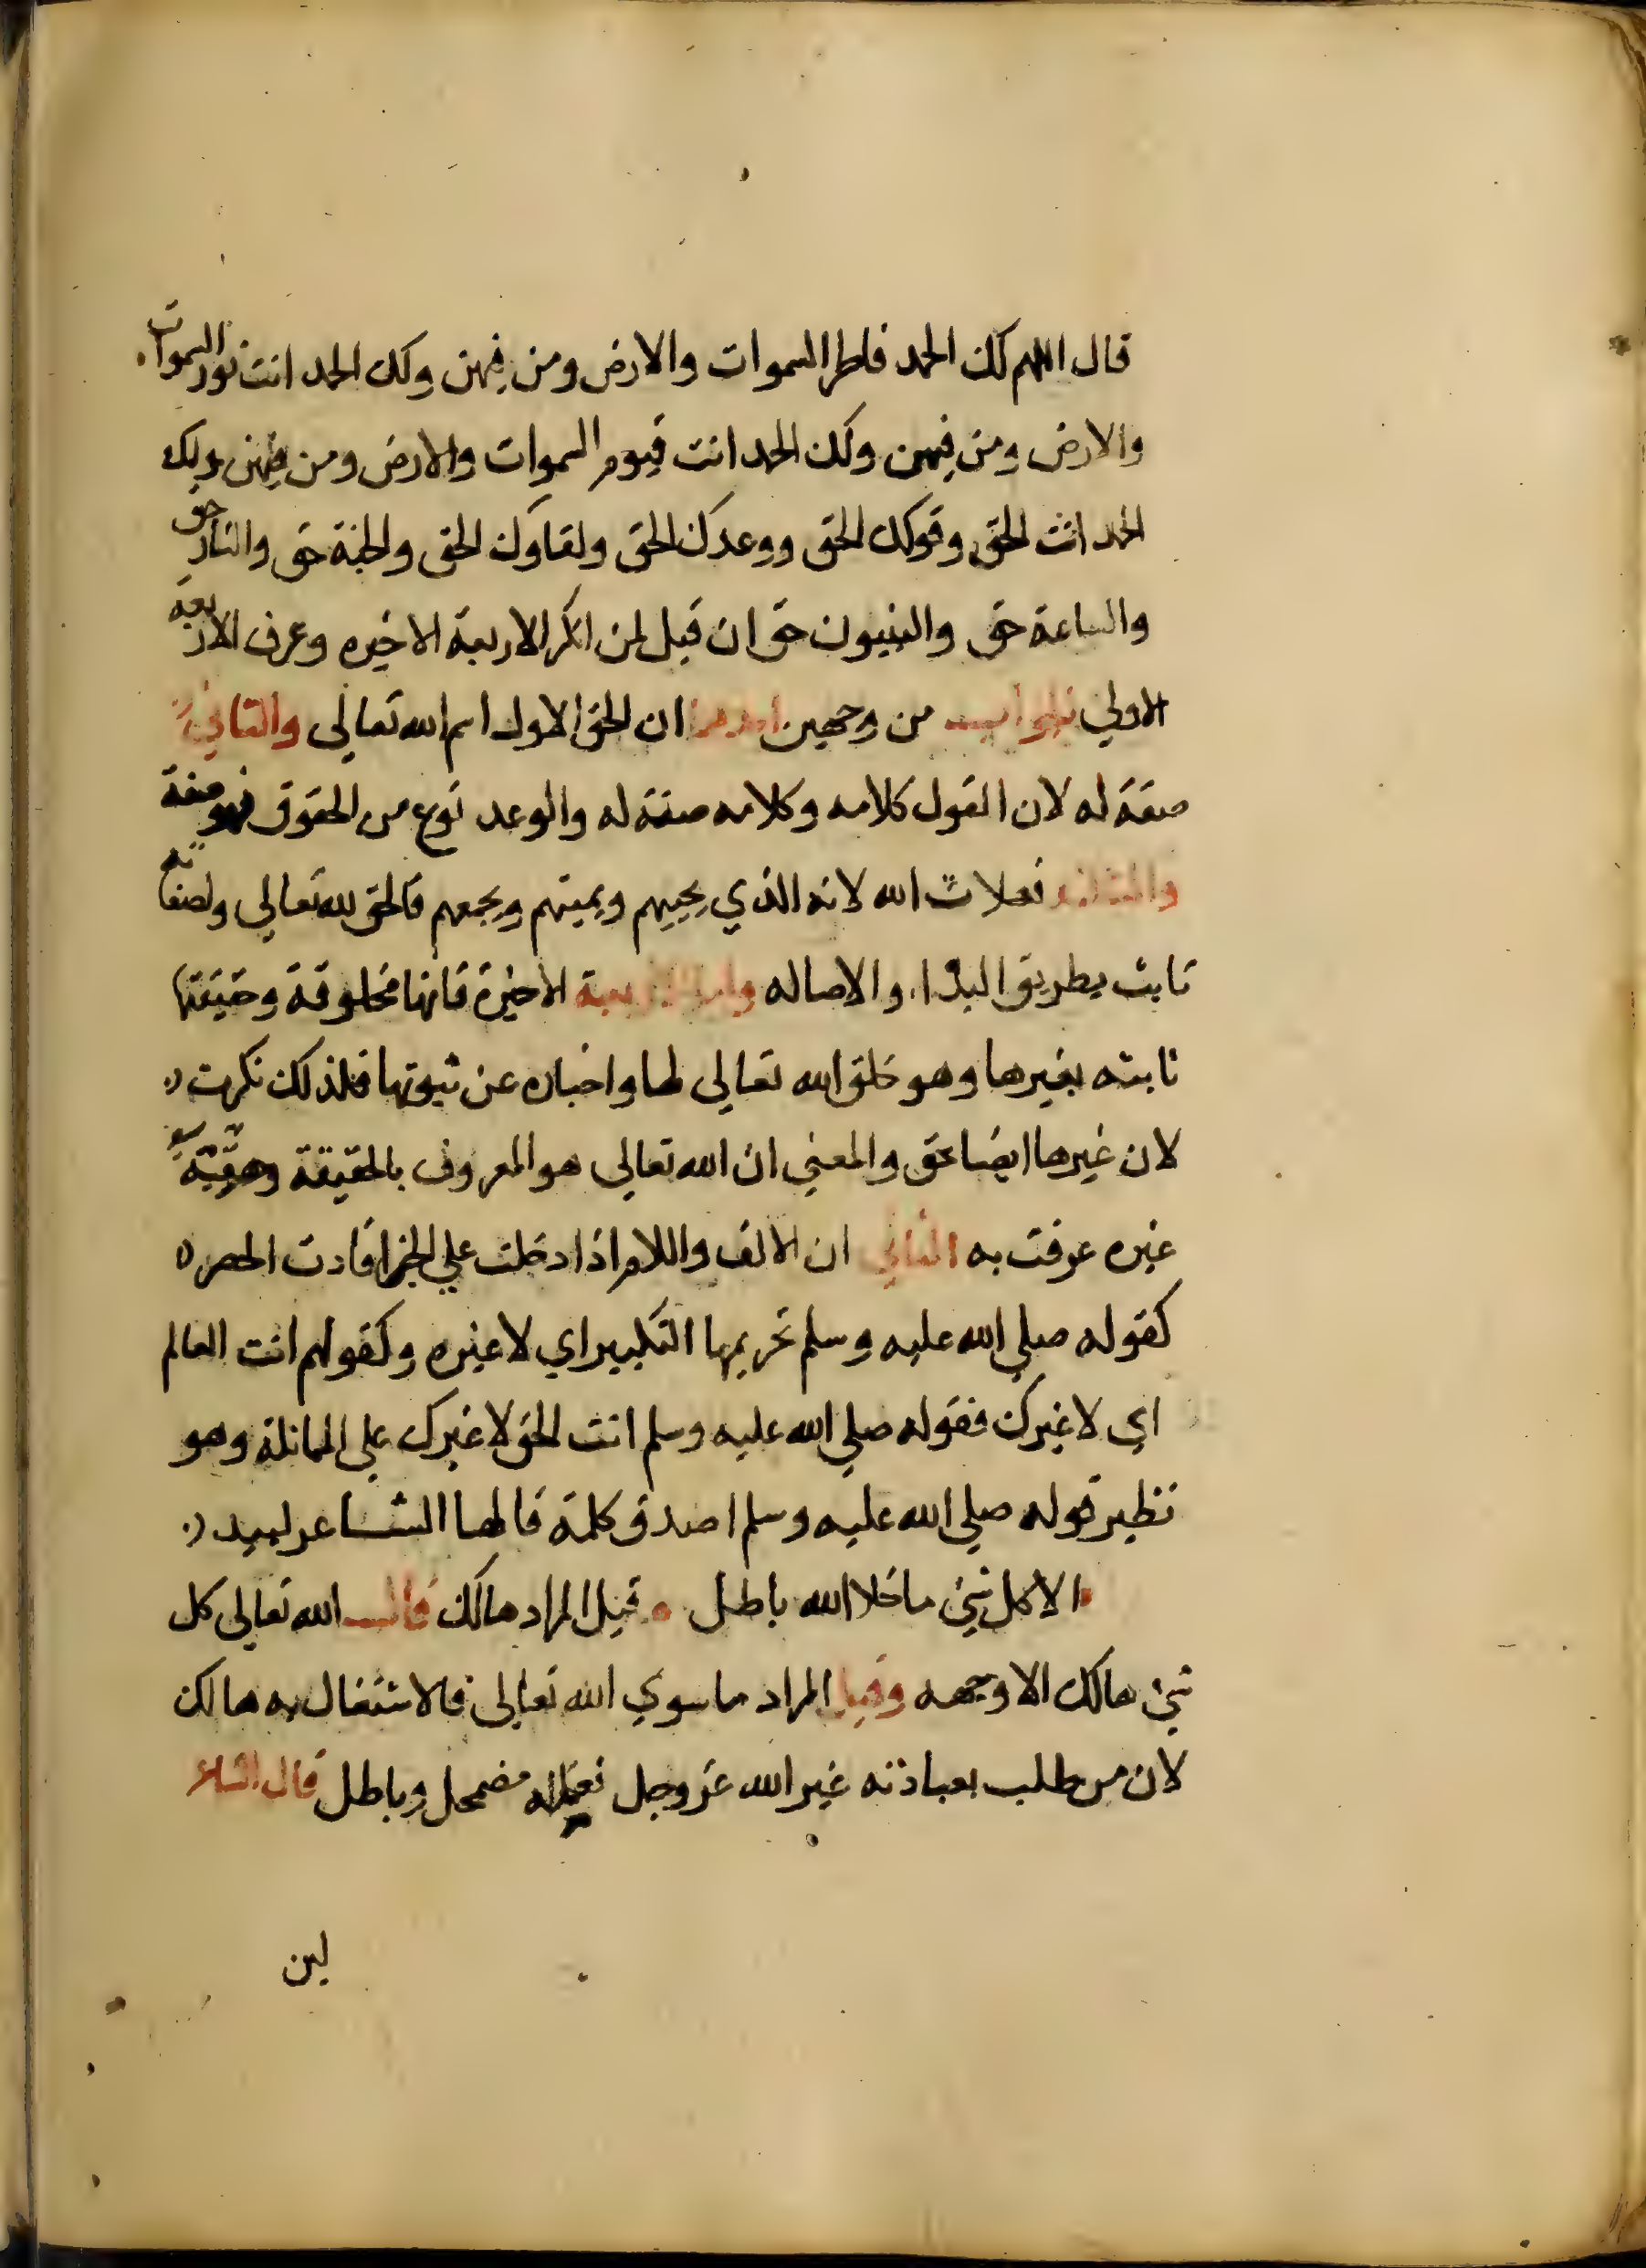 قال اللهم لك الحمد فاطر السموات والارض ومن فيهن ولك الحمد انت نور السموات
والارض ومن فيهن ولك الحمد انت قيوم السموات والارض ومن فيهن ولك
الحمد انت الحق وقولك الحق ووعدك الحق ولقاوك الحق والجنة حق والنار حق
والساعة حق والنبيون حق ان قيل لمن انكر الاربعة الاخيره وعرف الاربعة
الاولي فالجواب من وجهين احدهما ان الحق الاول اسم الله تعالى والثاني
صفة له لان القول كلامه وكلامه صفة له والوعد نوع من الحقوق فهو صفة
نعلات الله لانه الذي يحييهم ويميتهم ويجمعهم فالحق لله تعالي ولصفاته
ثابت بطريق والاصاله واما الاربعة الاخيرة فانها مخلوقة وحقيقتها
ثابته بغيرها وهو خلق الله تعالى لها واخباره عن ثبوتها فلذلك نكرت
لان غيرها ايضا حق والمعني ان الله تعالى هو المعروف بالحقيقة
غيره عرفت به الثاني ان الالف واللام اذا دخلت علي الخبر افادت الحصر
كقوله صلي الله عليه وسلم تحريمها التكبير اي لا غيره وكقولهم انت العالم
اي لا غيرك فقوله صلي الله عليه وسلم انت الحق لا غيرك علي المماثلة وهو
نظير قوله صلي الله عليه وسلم اصدق كلمة قالها الشاعر لبيد
الا كل شيئ ما خلا الله باطل قيل المراد هالك قال الله تعالى كل
شيئ هالك الا وجهه وقيل المراد ما سوي الله تعالى فالاشتغال به هالك
لان من طلب بعبادته غير الله عز وجل مضمحل وباطل قال الشاعر
لين